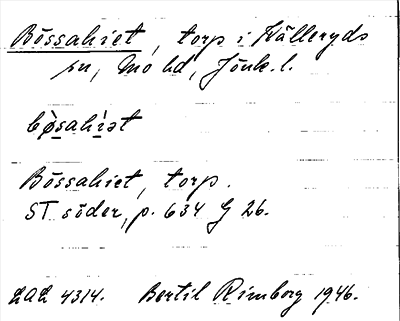 Bössahiet, torp i Hälleryds
sn, Mo hd, Jönk. l.
bø̀sahìat
Bössahiet, torp.
ST söder, p. 634 G 26.
LAL 4314. Bertil Rimborg 1946.